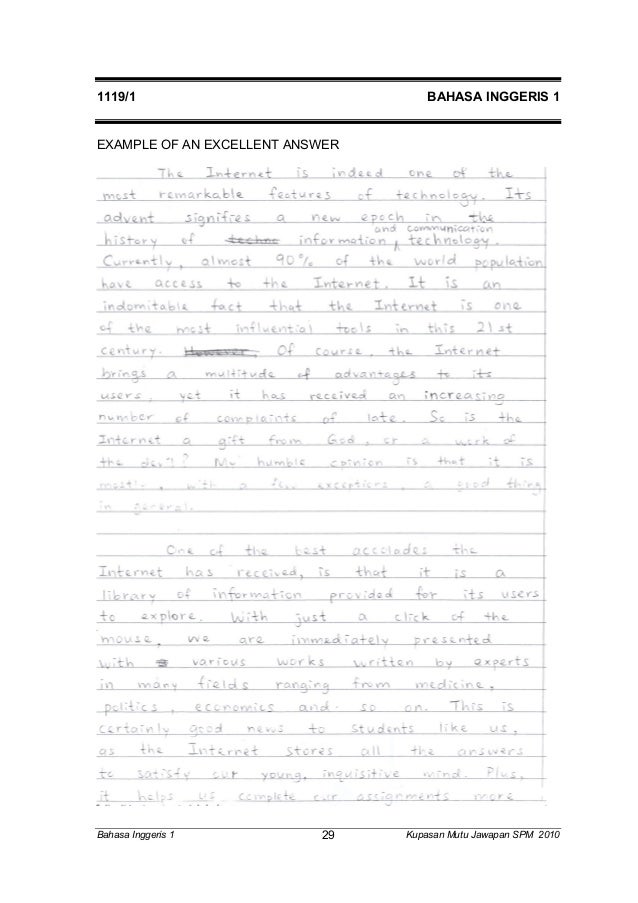 1119/1 BAHASA INGGERIS 1
EXAMPLE OF AN EXCELLENT ANSWER
The Internet is indeed one of the
most remarkable features of technology. Its
advent signifies a new epoch in the
and communication
history of techno information ^ technology.
Currently, almost 90% of the world population
have access to the Internet. It is an
indomitable fact that the Internet is one
of the most influential tools in this 21st
century. However, Of course, the Internet
brings a multitude of advantages to its
users, yet it has received an increasing
number of complaints of late. So is the
Internet a gift from God, or a work of
the devil? My humble opinion is that it is
mostly, with a few exceptions, a good thing
in general.
One of the best accolades the
Internet has received, is that it is a
library of information provided for its users
to explore. With just a click of the
mouse, we are immediately presented
with various works written by experts
in many fields ranging from medicine,
politics, economics and so on. This is
certainly good news to students like us,
as the Internet stores all the answers
to satisfy our young, inquisitive mind. Plus,
it helps us complete our assignments more
Bahasa Inggeris 1 29 Kupasan Mutu Jawapan SPM 2010